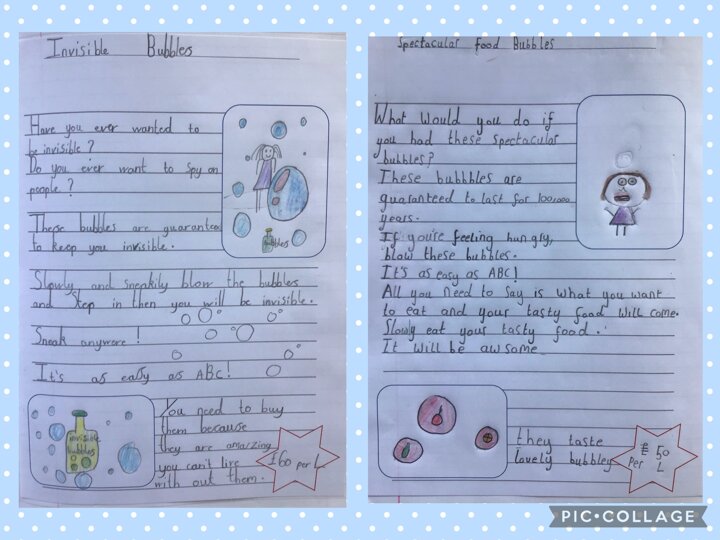 Invisible Bubbles
Have you ever wanted to
be invisible?
Do you ever want to spy on
people?
These bubbles are guarantee
to keep you invisible.
Slowly and sneakily blow the bubbles
and step in then you will be invisible.
Sneak anywere!
It's as easy as ABC!
bubbles
invisible
bubbles
You need to buy
them because
they are amazing
you can't live
with out them.
160 per L
Spectacular Food Bubbles
What would you do if
you had these spectacular
bubbles?
These bubbbles are
guaranteed to last for 100,000
years.
If you're feeling hungry,
blow these bubbles.
It's as easy as ABC!
All you need to say is what you want
to eat and your tasty food will come.
Slowly eat your tasty food.
It will be awsome
they taste
lovely bubbley
£ 50
per L
PIC•COLLAGE